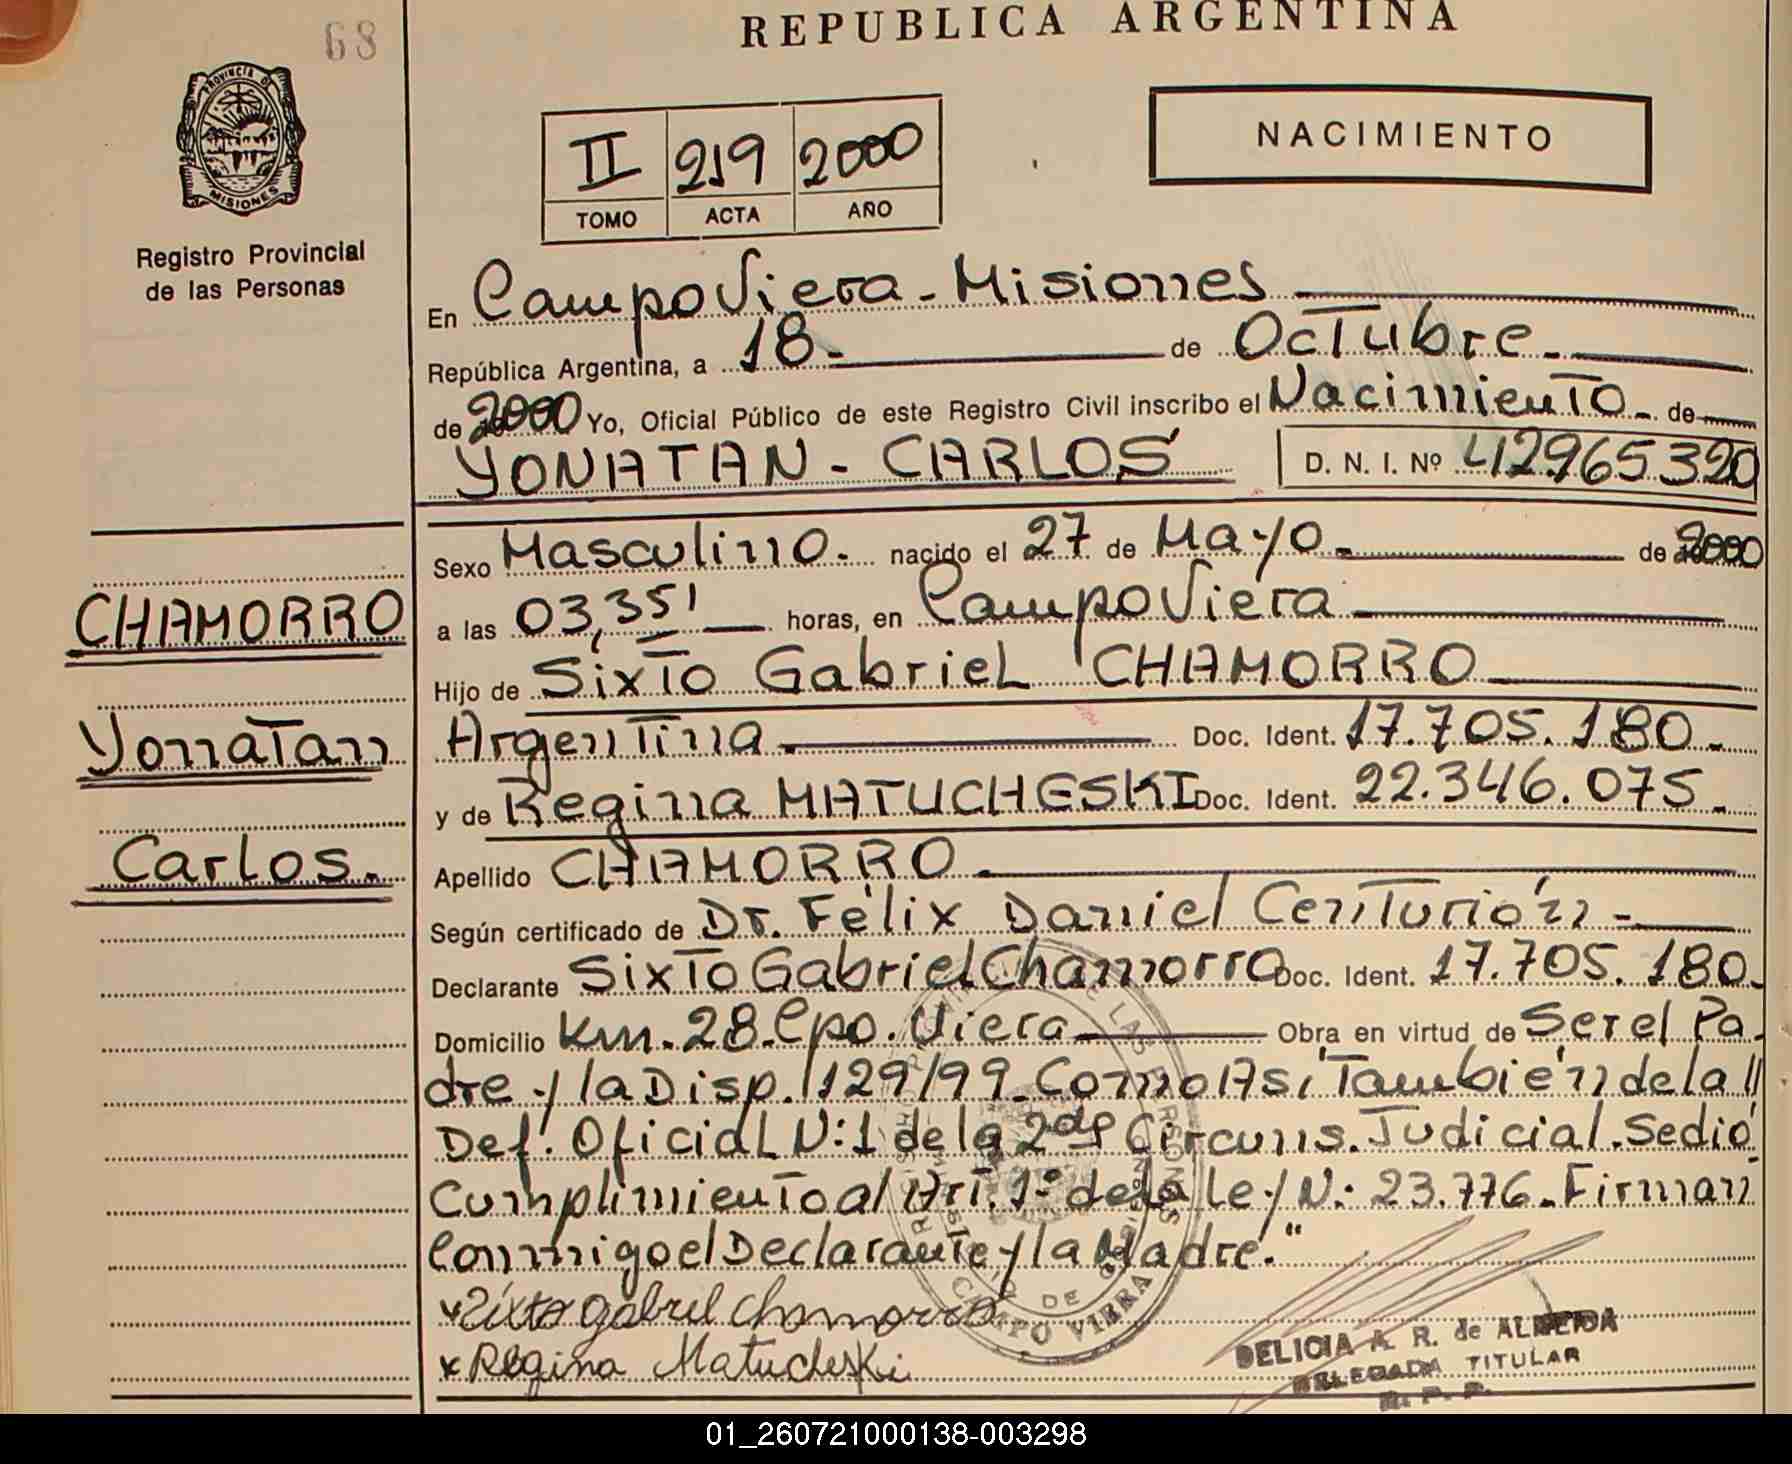 68
REPUBLICA ARGENTINA
PROVINCIA DE
MISIONES
Registro Provincial
de las Personas
II 219 2000
TOMO ACTA AÑO
NACIMIENTO
En Campo Viera - Misiones
República Argentina, a 18.- de Octubre.-
de 2000 Yo, Oficial Público de este Registro Civil inscribo el Nacimiento.- de
YONATAN - CARLOS D. N. I. Nº 42965320
Sexo Masculino.- nacido el 27 de Mayo.- de 2000
a las 03,35' horas, en Campo Viera
Hijo de Sixto Gabriel CHAMORRO
Argentina.- Doc. Ident. 17.705.180.-
y de Regina MATUCHESKI Doc. Ident. 22.346.075.-
Apellido CHAMORRO.-
Según certificado de Dr. Félix Daniel Centurión.-
Declarante Sixto Gabriel Chamorro Doc. Ident. 17.705.180.-
Domicilio Km. 28. Cpo. Viera Obra en virtud de Ser el Pa-
dre y la Disp. 1129/99. Como Así También de la //
Def. Oficial N:1 de la 2da Circuns. Judicial. Sedió
Cumplimiento al Art. 1º de la Ley N.: 23.776.- Firman
Conmigo el Declarante y la Madre."
x Sixto gabriel chamorro
x Regina Matucheski
CHAMORRO
Yonatan
Carlos.-
CAMPO VIERA
DELICIA A. R. de ALMEIDA
DELEGADA TITULAR
R. P. P.
01_260721000138-003298